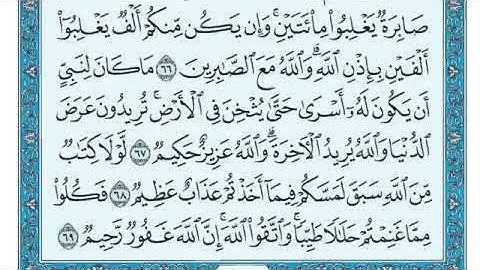 صَابِرَةٌ يَغْلِبُوا۟ مِا۟ئَتَيْنِ ۚ وَإِن يَكُن مِّنكُمْ أَلْفٌ يَغْلِبُوٓا۟
أَلْفَيْنِ بِإِذْنِ ٱللَّهِ ۗ وَٱللَّهُ مَعَ ٱلصَّـٰبِرِينَ ٦٦ مَا كَانَ لِنَبِىٍّ
أَن يَكُونَ لَهُۥٓ أَسْرَىٰ حَتَّىٰ يُثْخِنَ فِى ٱلْأَرْضِ ۚ تُرِيدُونَ عَرَضَ
ٱلدُّنْيَا وَٱللَّهُ يُرِيدُ ٱلْـَٔاخِرَةَ ۗ وَٱللَّهُ عَزِيزٌ حَكِيمٌ ٦٧ لَّوْلَا كِتَـٰبٌ
مِّنَ ٱللَّهِ سَبَقَ لَمَسَّكُمْ فِيمَآ أَخَذْتُمْ عَذَابٌ عَظِيمٌ ٦٨ فَكُلُوا۟
مِمَّا غَنِمْتُمْ حَلَـٰلًا طَيِّبًا ۚ وَٱتَّقُوا۟ ٱللَّهَ ۚ إِنَّ ٱللَّهَ غَفُورٌ رَّحِيمٌ ٦٩